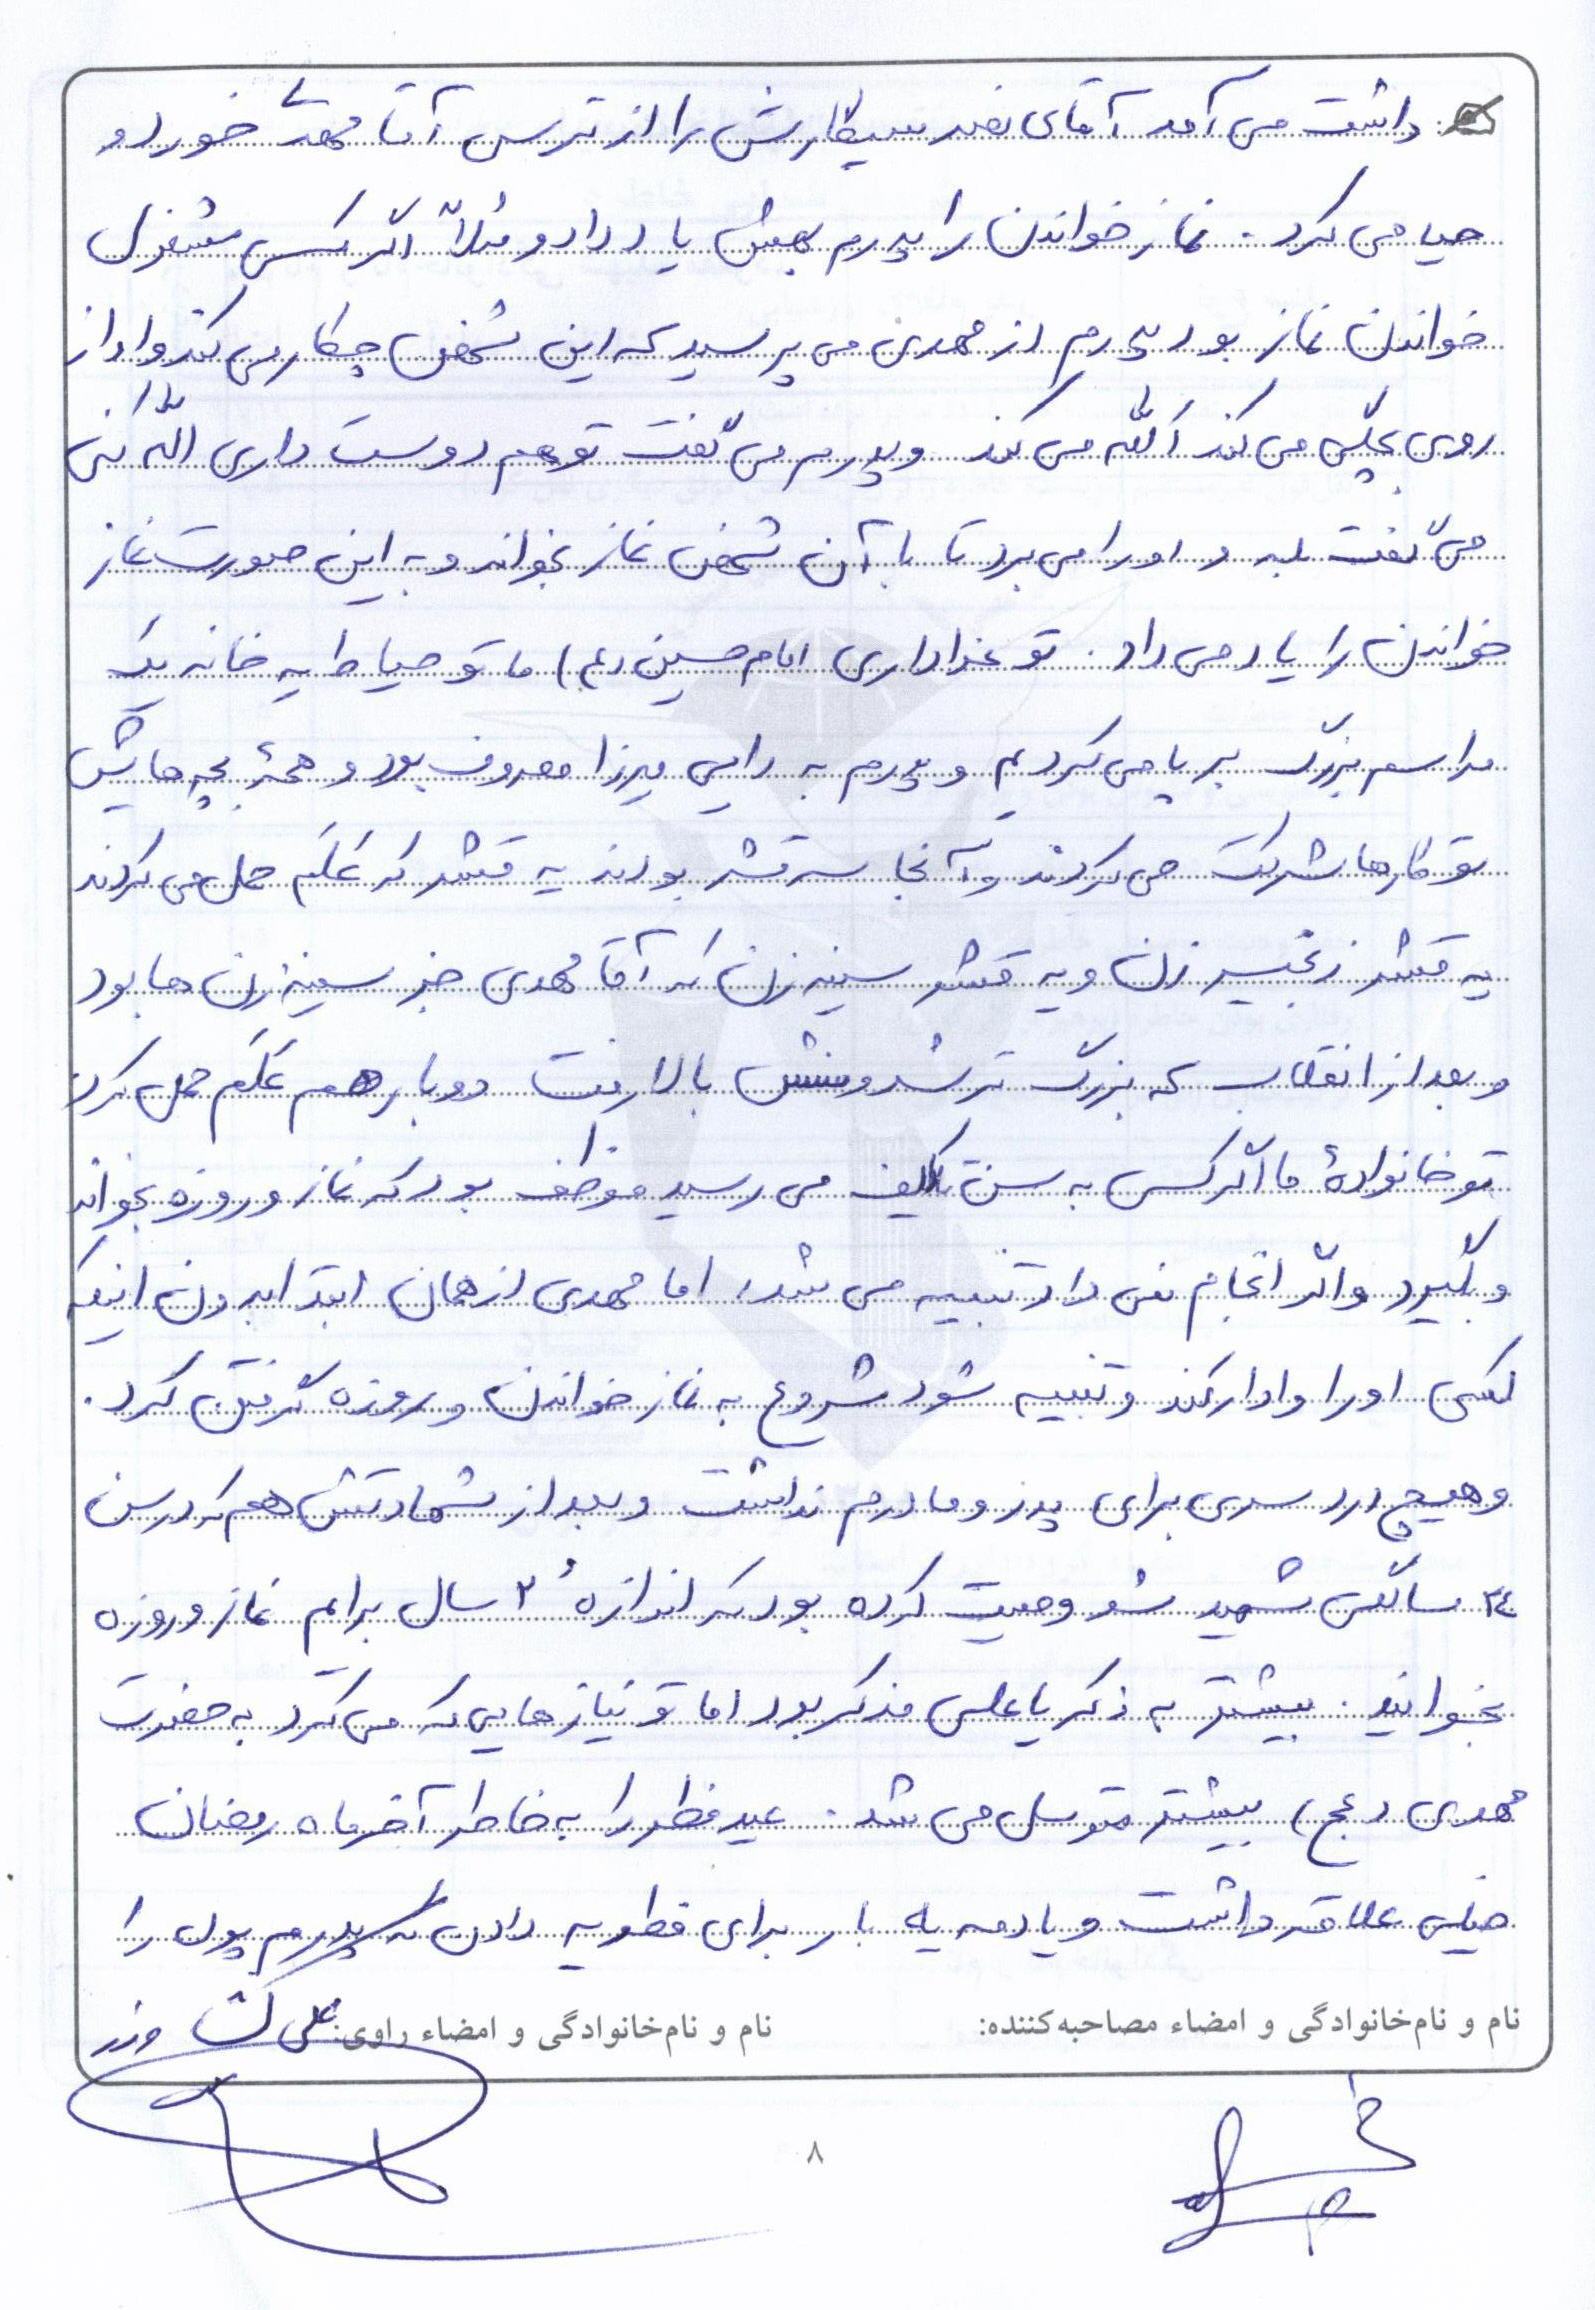 داشت می آمد آقای نصر سیگارش را از ترس آقا مهدی خورد و
حیا می کرد. نماز خواندن را پدرم بهش یاد داد و مثلاً اگر کسی مشغول
خواندن نماز بود پدرم از مهدی می پرسید که این شخص چکار می کند و او از
روی بچگی می کند الله می کند و پدرم می گفت تو هم دوست داری الله کنی
می گفت بله و او را می برد تا با آن شخص نماز بخواند و به این صورت نماز
خواندن را یاد می داد. تو عزاداری امام حسین (ع) ما تو حیاط یه خانه یک
مراسم بزرگ بر پا می کردیم و پدرم به دایی میرزا معروف بود و همهٔ بچه هایش
تو کارها شرکت می کردند و آنجا سه قشر بودند یه قشر که علم حمل می کردند
یه قشر زنجیر زن و یه قشر سینه زن که آقا مهدی جز سینه زن ها بود
و بعد از انقلاب که بزرگ تر شد و سنش بالا رفت دو بار هم علم حمل کرد
تو خانوادهٔ ما اگر کسی به سن تکلیف می رسید موظف بود که نماز و روزه بخواند
و بگیرد و اگر انجام نمی داد تنبیه می شد، اما مهدی از همان ابتدا بدون اینکه
کسی او را وادار کند و تنبیه شود شروع به نماز خواندن و روزه گرفتن کرد.
و هیچ درد سری برای پدر و مادرم نداشت و بعد از شهادتش هم که در سن
۲۴ سالگی شهید شد وصیت کرده بود که اندازهٔ ۲ سال برایم نماز و روزه
بخوانید. بیشتر به ذکر یا علی متذکر بود اما تو نیازهایی که می کرد به حضرت
مهدی (عج) بیشتر متوسل می شد. عید فطر را به خاطر آخر ماه رمضان
خیلی علاقه داشت و یادمه یه بار برای فطریه دادن که پدرم پول را
نام و نام‌خانوادگی و امضاء مصاحبه‌کننده:
نام و نام‌خانوادگی و امضاء راوی: علی کشاورز
۸